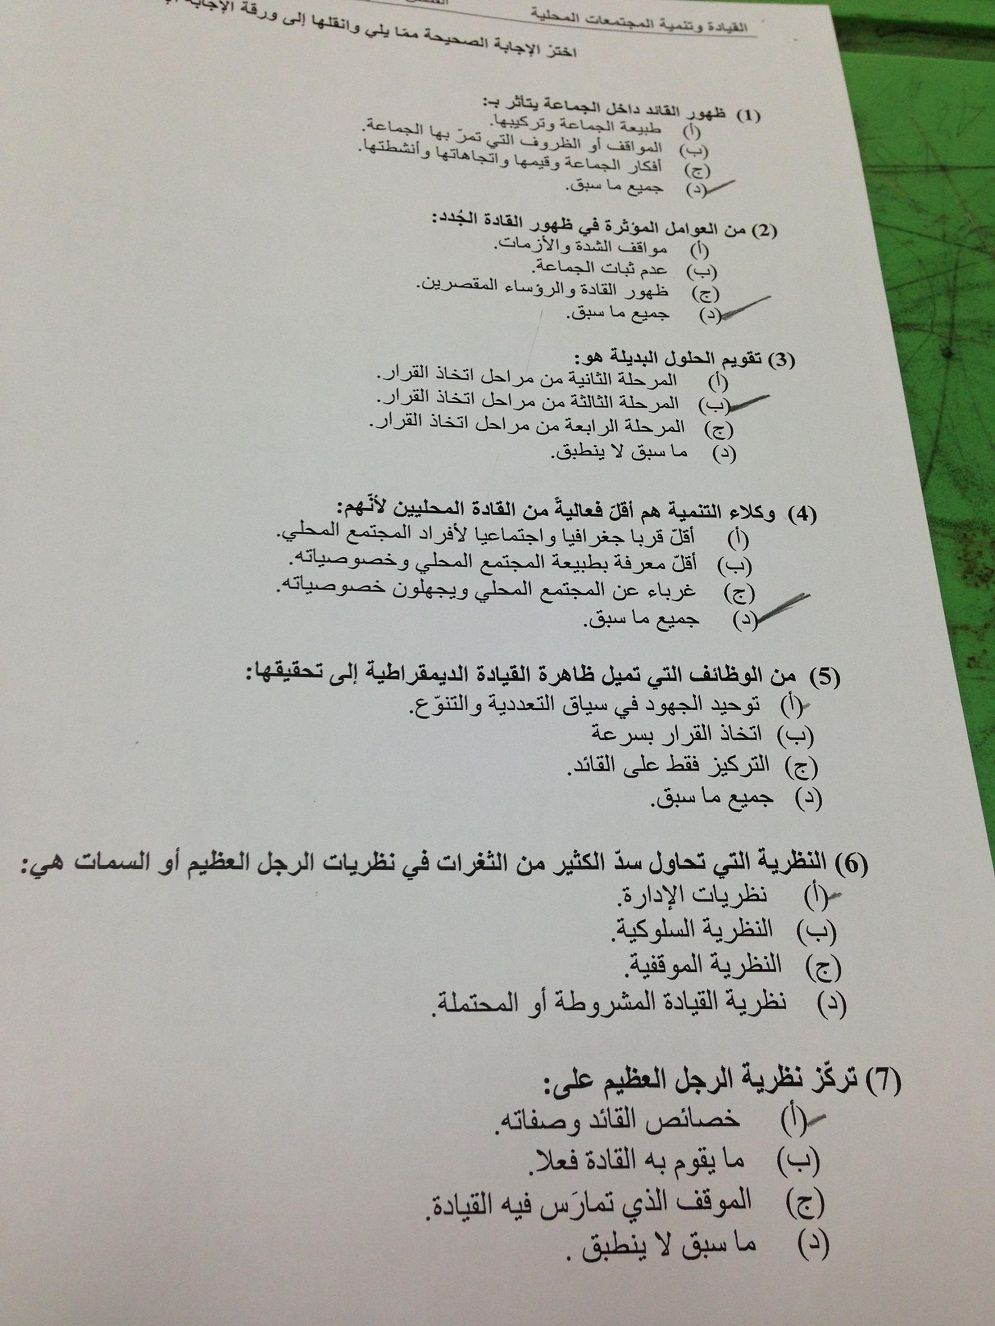 القيادة وتنمية المجتمعات المحلية
اختر الإجابة الصحيحة ممّا يلي وانقلها إلى ورقة الإجابة
(1) ظهور القائد داخل الجماعة يتأثر بـ:
(أ) طبيعة الجماعة وتركيبها.
(ب) المواقف أو الظروف التي تمرّ بها الجماعة.
(ج) أفكار الجماعة وقيمها واتجاهاتها وأنشطتها.
(د) جميع ما سبق.
(2) من العوامل المؤثرة في ظهور القادة الجُدد:
(أ) مواقف الشدة والأزمات.
(ب) عدم ثبات الجماعة.
(ج) ظهور القادة والرؤساء المقصرين.
(د) جميع ما سبق.
(3) تقويم الحلول البديلة هو:
(أ) المرحلة الثانية من مراحل اتخاذ القرار.
(ب) المرحلة الثالثة من مراحل اتخاذ القرار.
(ج) المرحلة الرابعة من مراحل اتخاذ القرار.
(د) ما سبق لا ينطبق.
(4) وكلاء التنمية هم أقلّ فعاليةً من القادة المحليين لأنّهم:
(أ) أقلّ قربا جغرافيا واجتماعيا لأفراد المجتمع المحلي.
(ب) أقلّ معرفة بطبيعة المجتمع المحلي وخصوصياته.
(ج) غرباء عن المجتمع المحلي ويجهلون خصوصياته.
(د) جميع ما سبق.
(5) من الوظائف التي تميل ظاهرة القيادة الديمقراطية إلى تحقيقها:
(أ) توحيد الجهود في سياق التعددية والتنوّع.
(ب) اتخاذ القرار بسرعة
(ج) التركيز فقط على القائد.
(د) جميع ما سبق.
(6) النظرية التي تحاول سدّ الكثير من الثغرات في نظريات الرجل العظيم أو السمات هي:
(أ) نظريات الإدارة.
(ب) النظرية السلوكية.
(ج) النظرية الموقفية.
(د) نظرية القيادة المشروطة أو المحتملة.
(7) تركّز نظرية الرجل العظيم على:
(أ) خصائص القائد وصفاته.
(ب) ما يقوم به القادة فعلا.
(ج) الموقف الذي تمارَس فيه القيادة.
(د) ما سبق لا ينطبق .